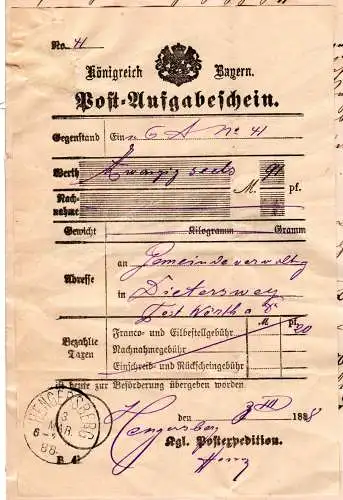 No. 41
Königreich Bayern.
Post-Aufgabeschein.
Gegenstand Ein G A No 41
Werth Zwanzig sechs M. 91 pf.
Nach-
nahme
Gewicht Kilogramm Gramm
Adresse
an Gemeindeverwaltg
in
Post Wörth a/
Bezahlte
Taxen
M. pf.
Franco- und Eilbestellgebühr 20
Nachnahmegebühr
Einschreib- und Rückscheingebühr
ist heute zur Beförderung übergeben worden.
HENGERSBERG
3
MAR.
88
Hengersberg den 3/III 1888
Kgl. Postexpedition.